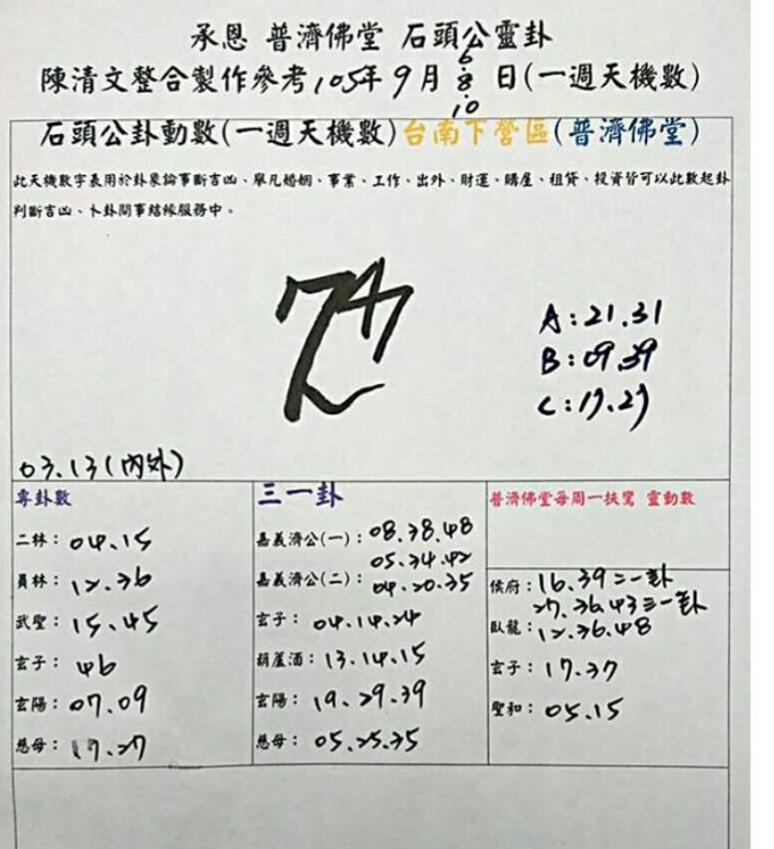 承恩 普濟佛堂 石頭公靈卦
陳清文整合製作參考105年9月6.8.10日(一週天機數)
石頭公卦動數(一週天機數)台南下營區(普濟佛堂)
此天機數字表用於卦象論事斷吉凶、舉凡婚姻、事業、工作、出外、財運、購屋、租貸、投資皆可以此數起卦
判斷吉凶、卜卦問事結緣服務中。
A:21.31
B:09.39
C:17.27
03.13(內外)
專卦數
二林: 04.15
員林: 12.36
武聖: 15.45
玄子: 46
玄陽: 07.09
慈母: 17.27
三一卦
嘉義濟公(一): 08.38.48
05.34.42
嘉義濟公(二): 04.20.35
玄子: 04.14.24
葫蘆酒: 13.14.15
玄陽: 19.29.39
慈母: 05.25.35
普濟佛堂每周一扶鸞 靈動數
侯府: 16.39二一卦
27.36.43三一卦
臥龍: 12.36.48
玄子: 17.37
聖和: 05.15